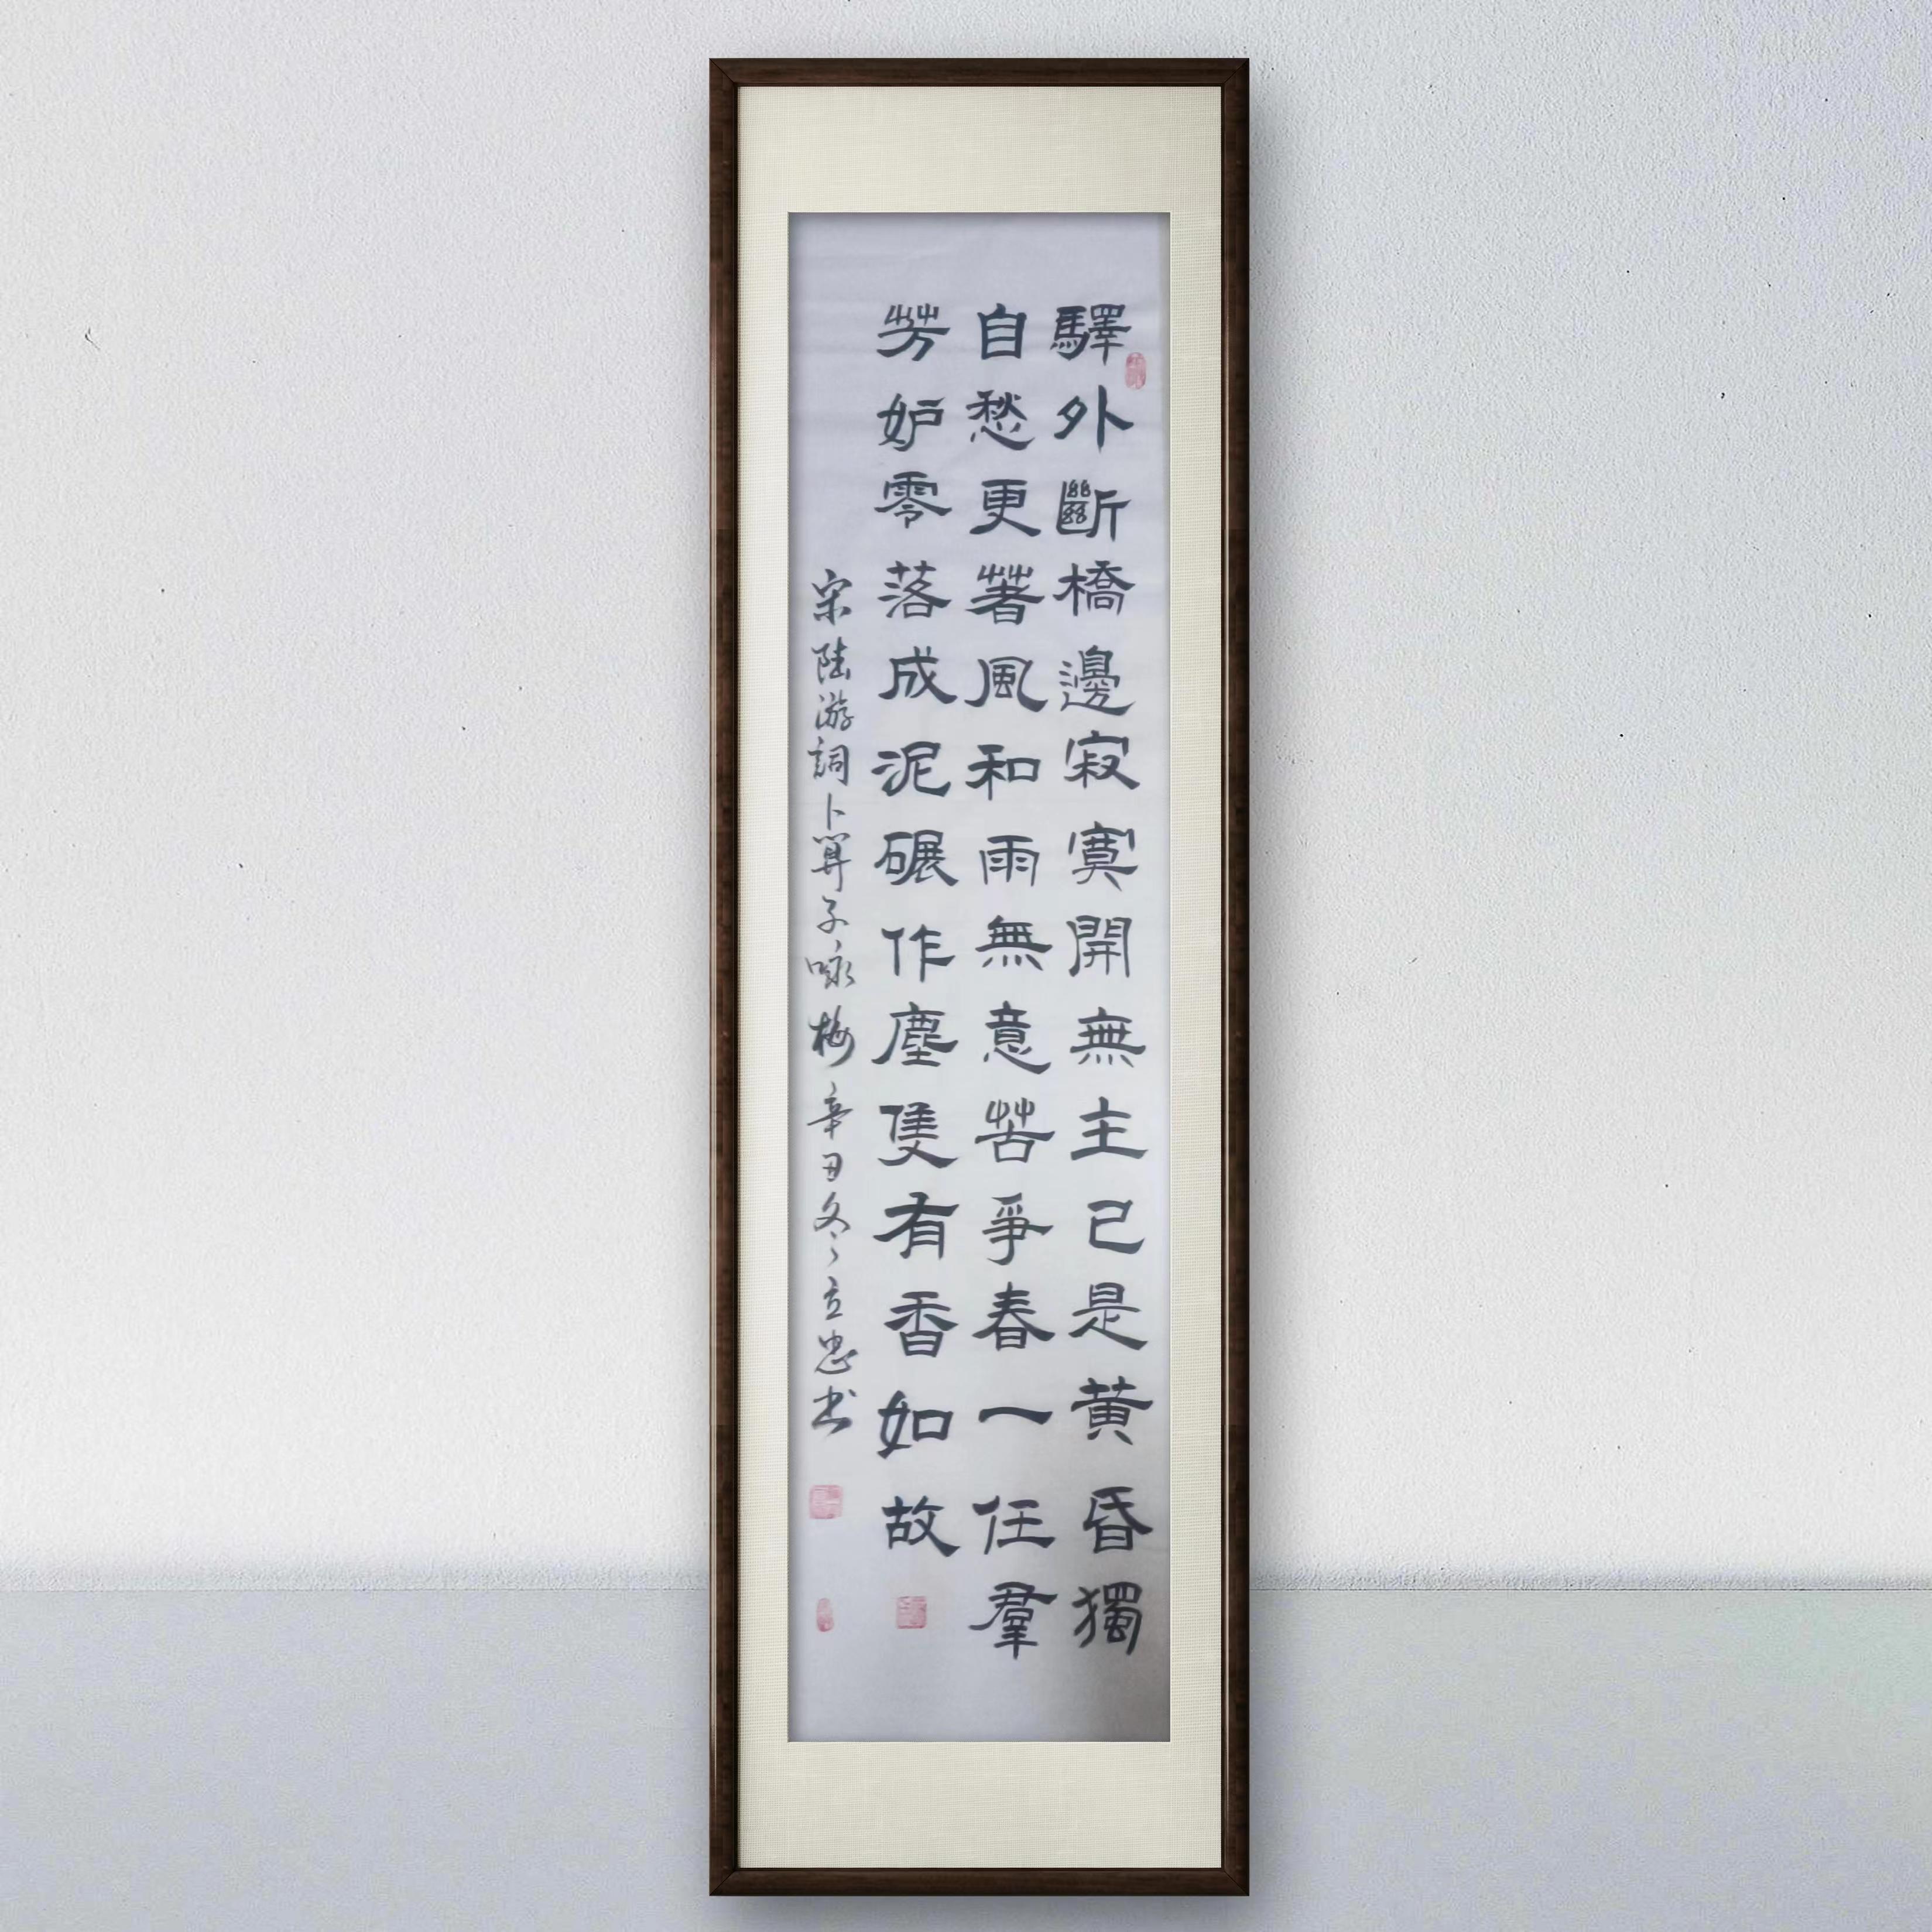 驛外斷橋邊寂寞開無主已是黃昏獨
自愁更著風和雨無意苦爭春一任羣
芳妒零落成泥碾作塵隻有香如故
宋陸游詞卜算子咏梅辛丑冬立忠书